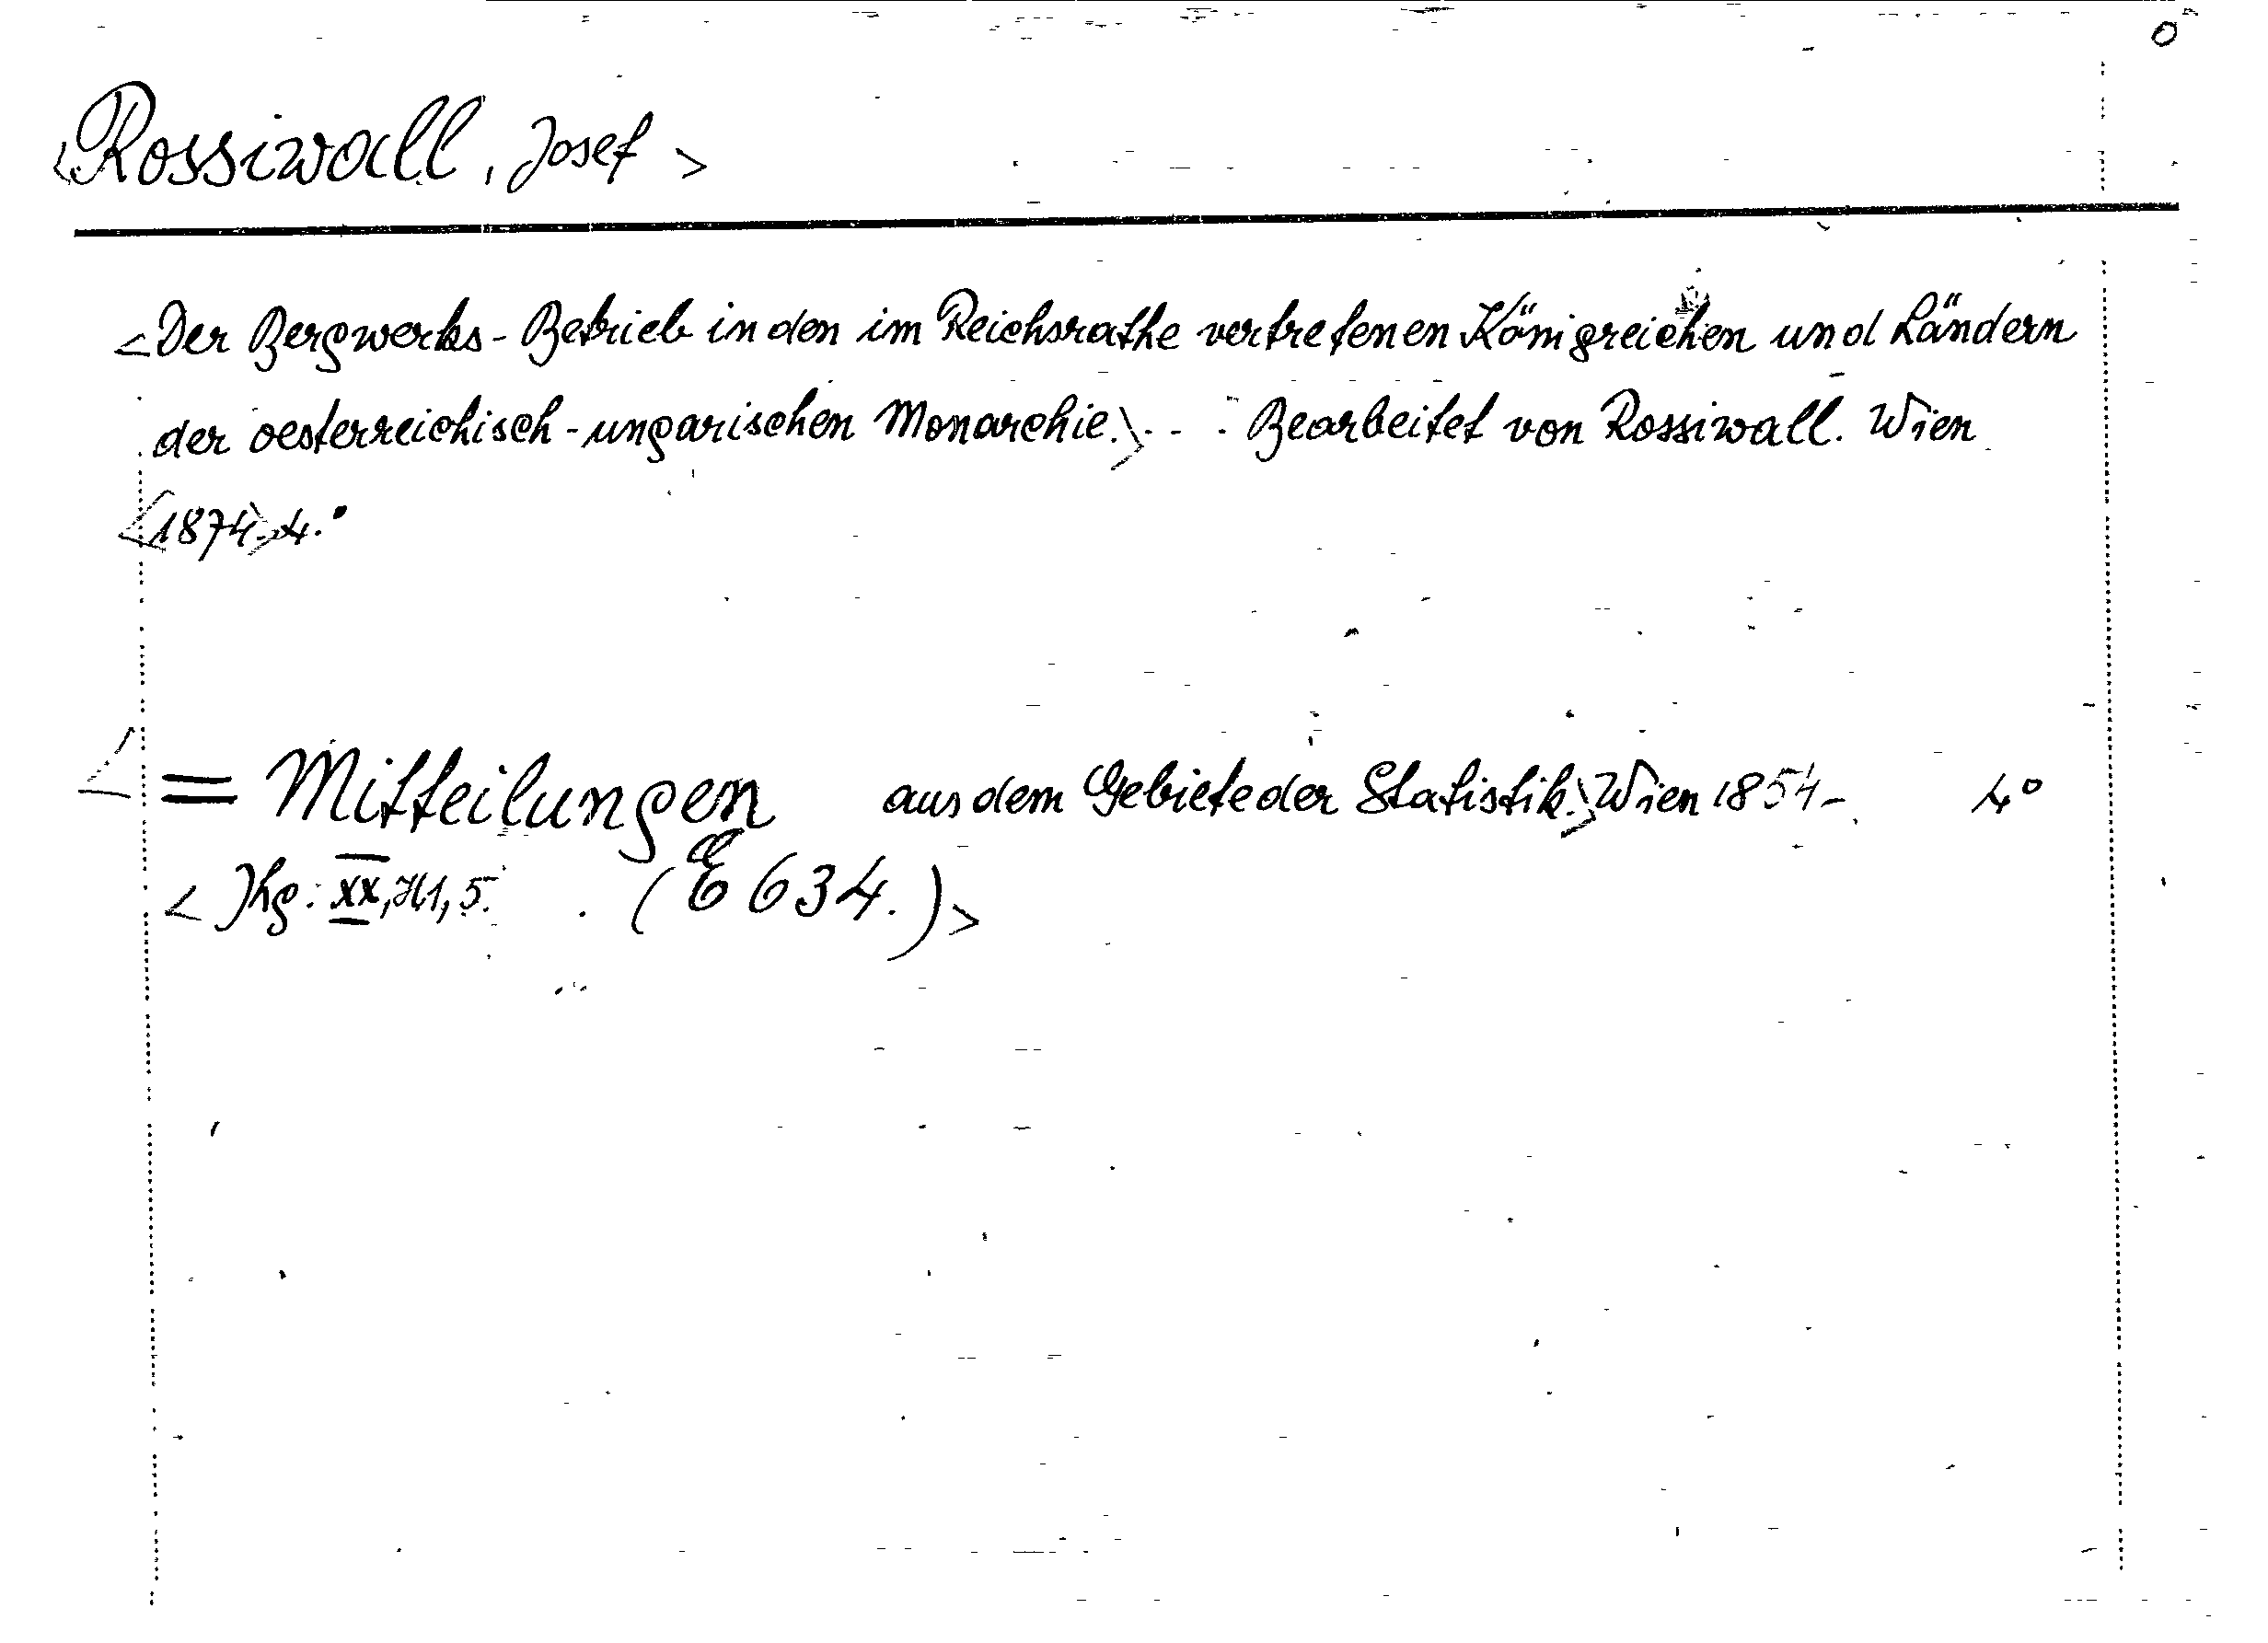 0
<Rossiwall, Josef>
<Der Bergwerks-Betrieb in den im Reichsrathe vertretenen Königreichen und Ländern
der oesterreichisch-ungarischen Monarchie.> - - - Bearbeitet von Rossiwall. Wien
<1874.> 4.°
<= Mitteilungen aus dem Gebiete der Statistik.> Wien 1854- 4°
< Jhg: XX, H1, 5. (E 634.)>